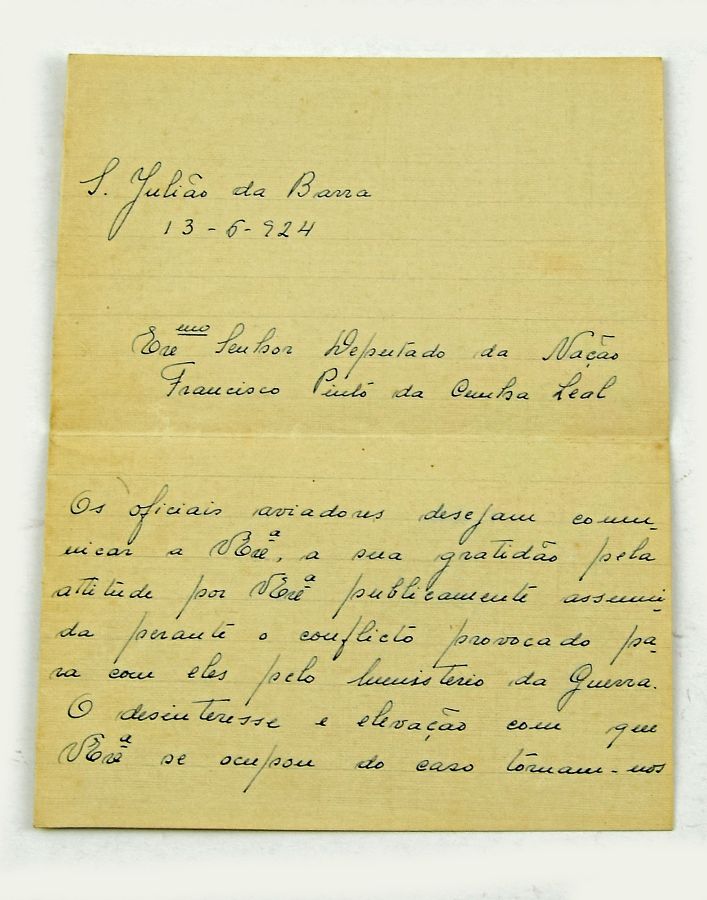 S. Julião da Barra
13-6-924
Exᵐᵒ Senhor Deputado da Nação
Francisco Pinto da Cunha Leal
Os oficiais aviadores desejam comu-
nicar a VExᵃ, a sua gratidão pela
attitude por VExᵃ publicamente assumi-
da perante o conflicto provocado pa-
ra com eles pelo Ministerio da Guerra.
O desinteresse e elevação com que
VExᵃ se ocupou do caso tornam-nos